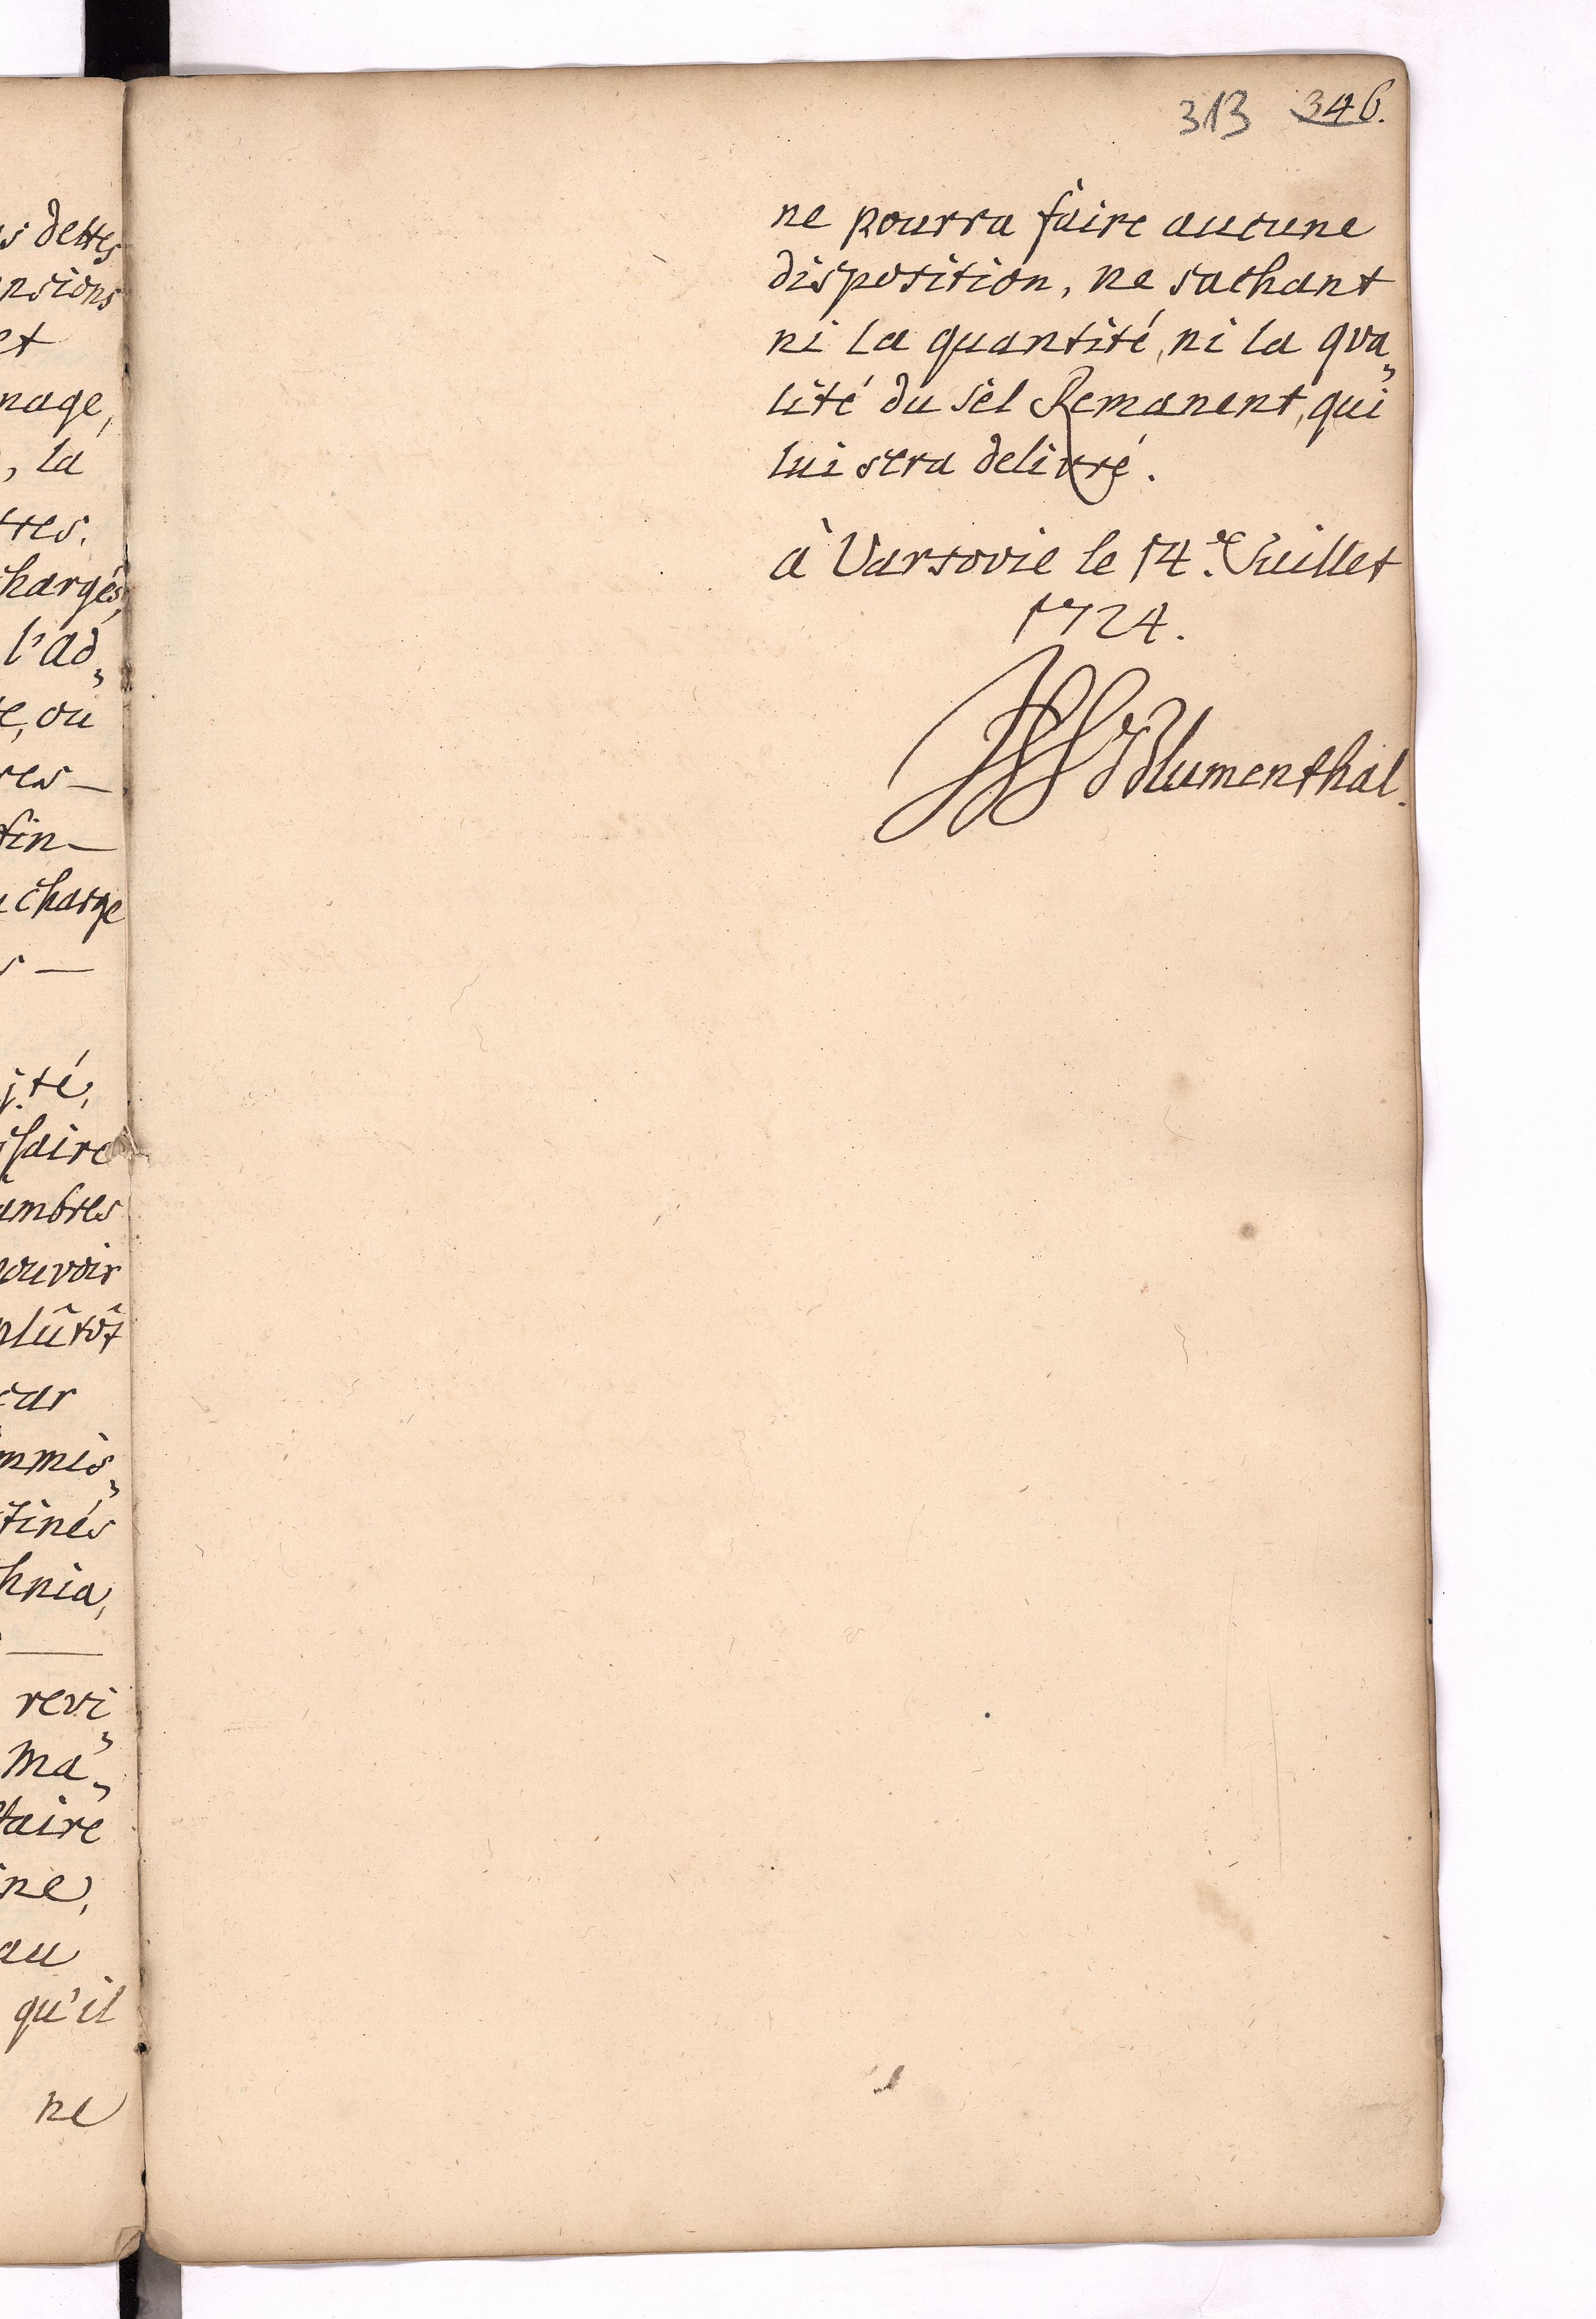 s dettes
nsions
et
nage,
, la
tres.
hargés,
l'ad„
e, ou
res—
fin—
charge
s —
j.té,
faire
ambres
pouvoir
plûtôt
car
mmis„
tinés
hnia,
revi„
Ma„
taire
ine,
au
qu'il
ne
313 346.
ne pourra faire aucune
disposition, ne sachant
ni la quantité, ni la qva„
lité du sel Remanent, qui
lui sera delivré.
à Varsovie le 14.e Juillet
1724.
Blumenthal.